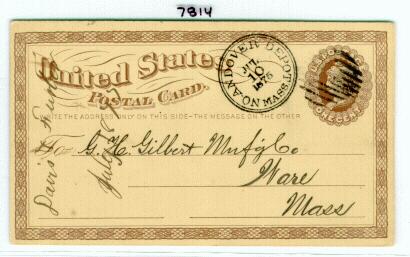 7814
United States
Postal Card.
WRITE THE ADDRESS ONLY ON THIS SIDE-THE MESSAGE ON THE OTHER
NO. ANDOVER DEPOT
MASS
JUL
10
1875
ONE CENT
To G. H. Gilbert Mnf'g Co
Ware
Mass
Davis &
July